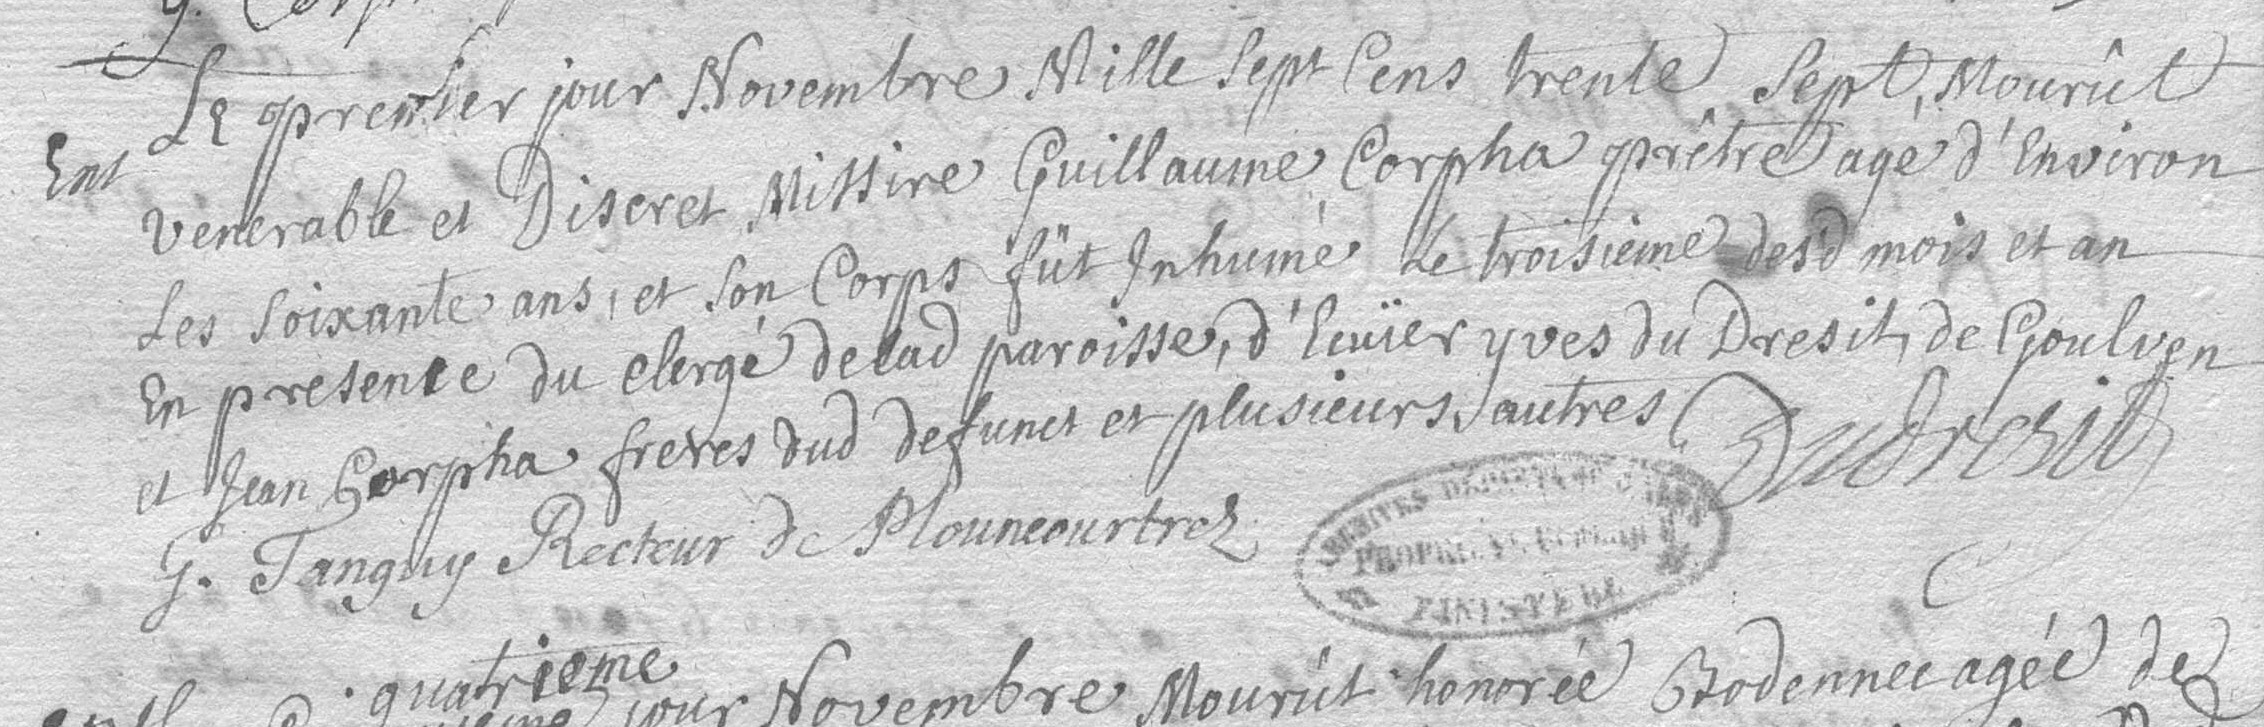 Le premier jour Novembre Mille Sept Cens trente Sept, Mourût
Ent
venerable et Discret Missire Guillaume Corpha prêtre agé d'Environ
Les Soixante ans, et Son Corps fût Inhumé Le troisieme desd mois et an
En presence du clergé delad paroisse, d'Ecuïer yves du Dresit, de Goulven
et Jean Corpha freres dud defunct et plusieurs autres Dudresit
G. Tanguy Recteur de Plouneourtrez
ARCHIVES
PROPRIÉTÉ PUBLIQUE
FINISTERE
quatrieme
jour Novembre Mourût honorée Bodennec agée de